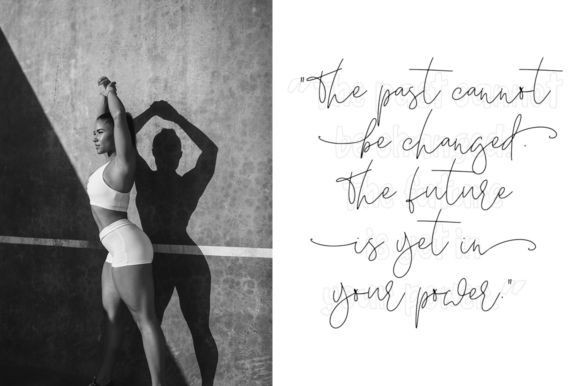 "The past cannot
be changed.
The future
is yet in
your power."